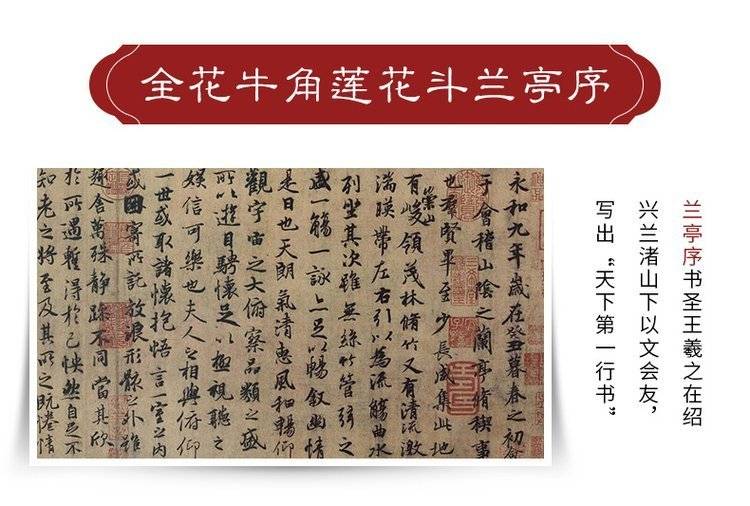 全花牛角莲花斗兰亭序
兰亭序书圣王羲之在绍
兴兰渚山下以文会友，
写出“天下第一行书”
永和九年歲在癸丑暮春之初會
于會稽山陰之蘭亭脩稧事
也羣賢畢至少長咸集此地
有崇山峻領茂林脩竹又有清流激
湍暎帶左右引以為流觴曲水
列坐其次雖無絲竹管弦之
盛一觴一詠亦足以暢叙幽情
是日也天朗氣清惠風和暢仰
觀宇宙之大俯察品類之盛
所以遊目騁懷足以極視聽之
娛信可樂也夫人之相與俯仰
一世或取諸懷抱悟言一室之內
或因寄所託放浪形骸之外雖
趣舍萬殊靜躁不同當其欣
於所遇暫得於己怏然自足不
知老之將至及其所之既惓情